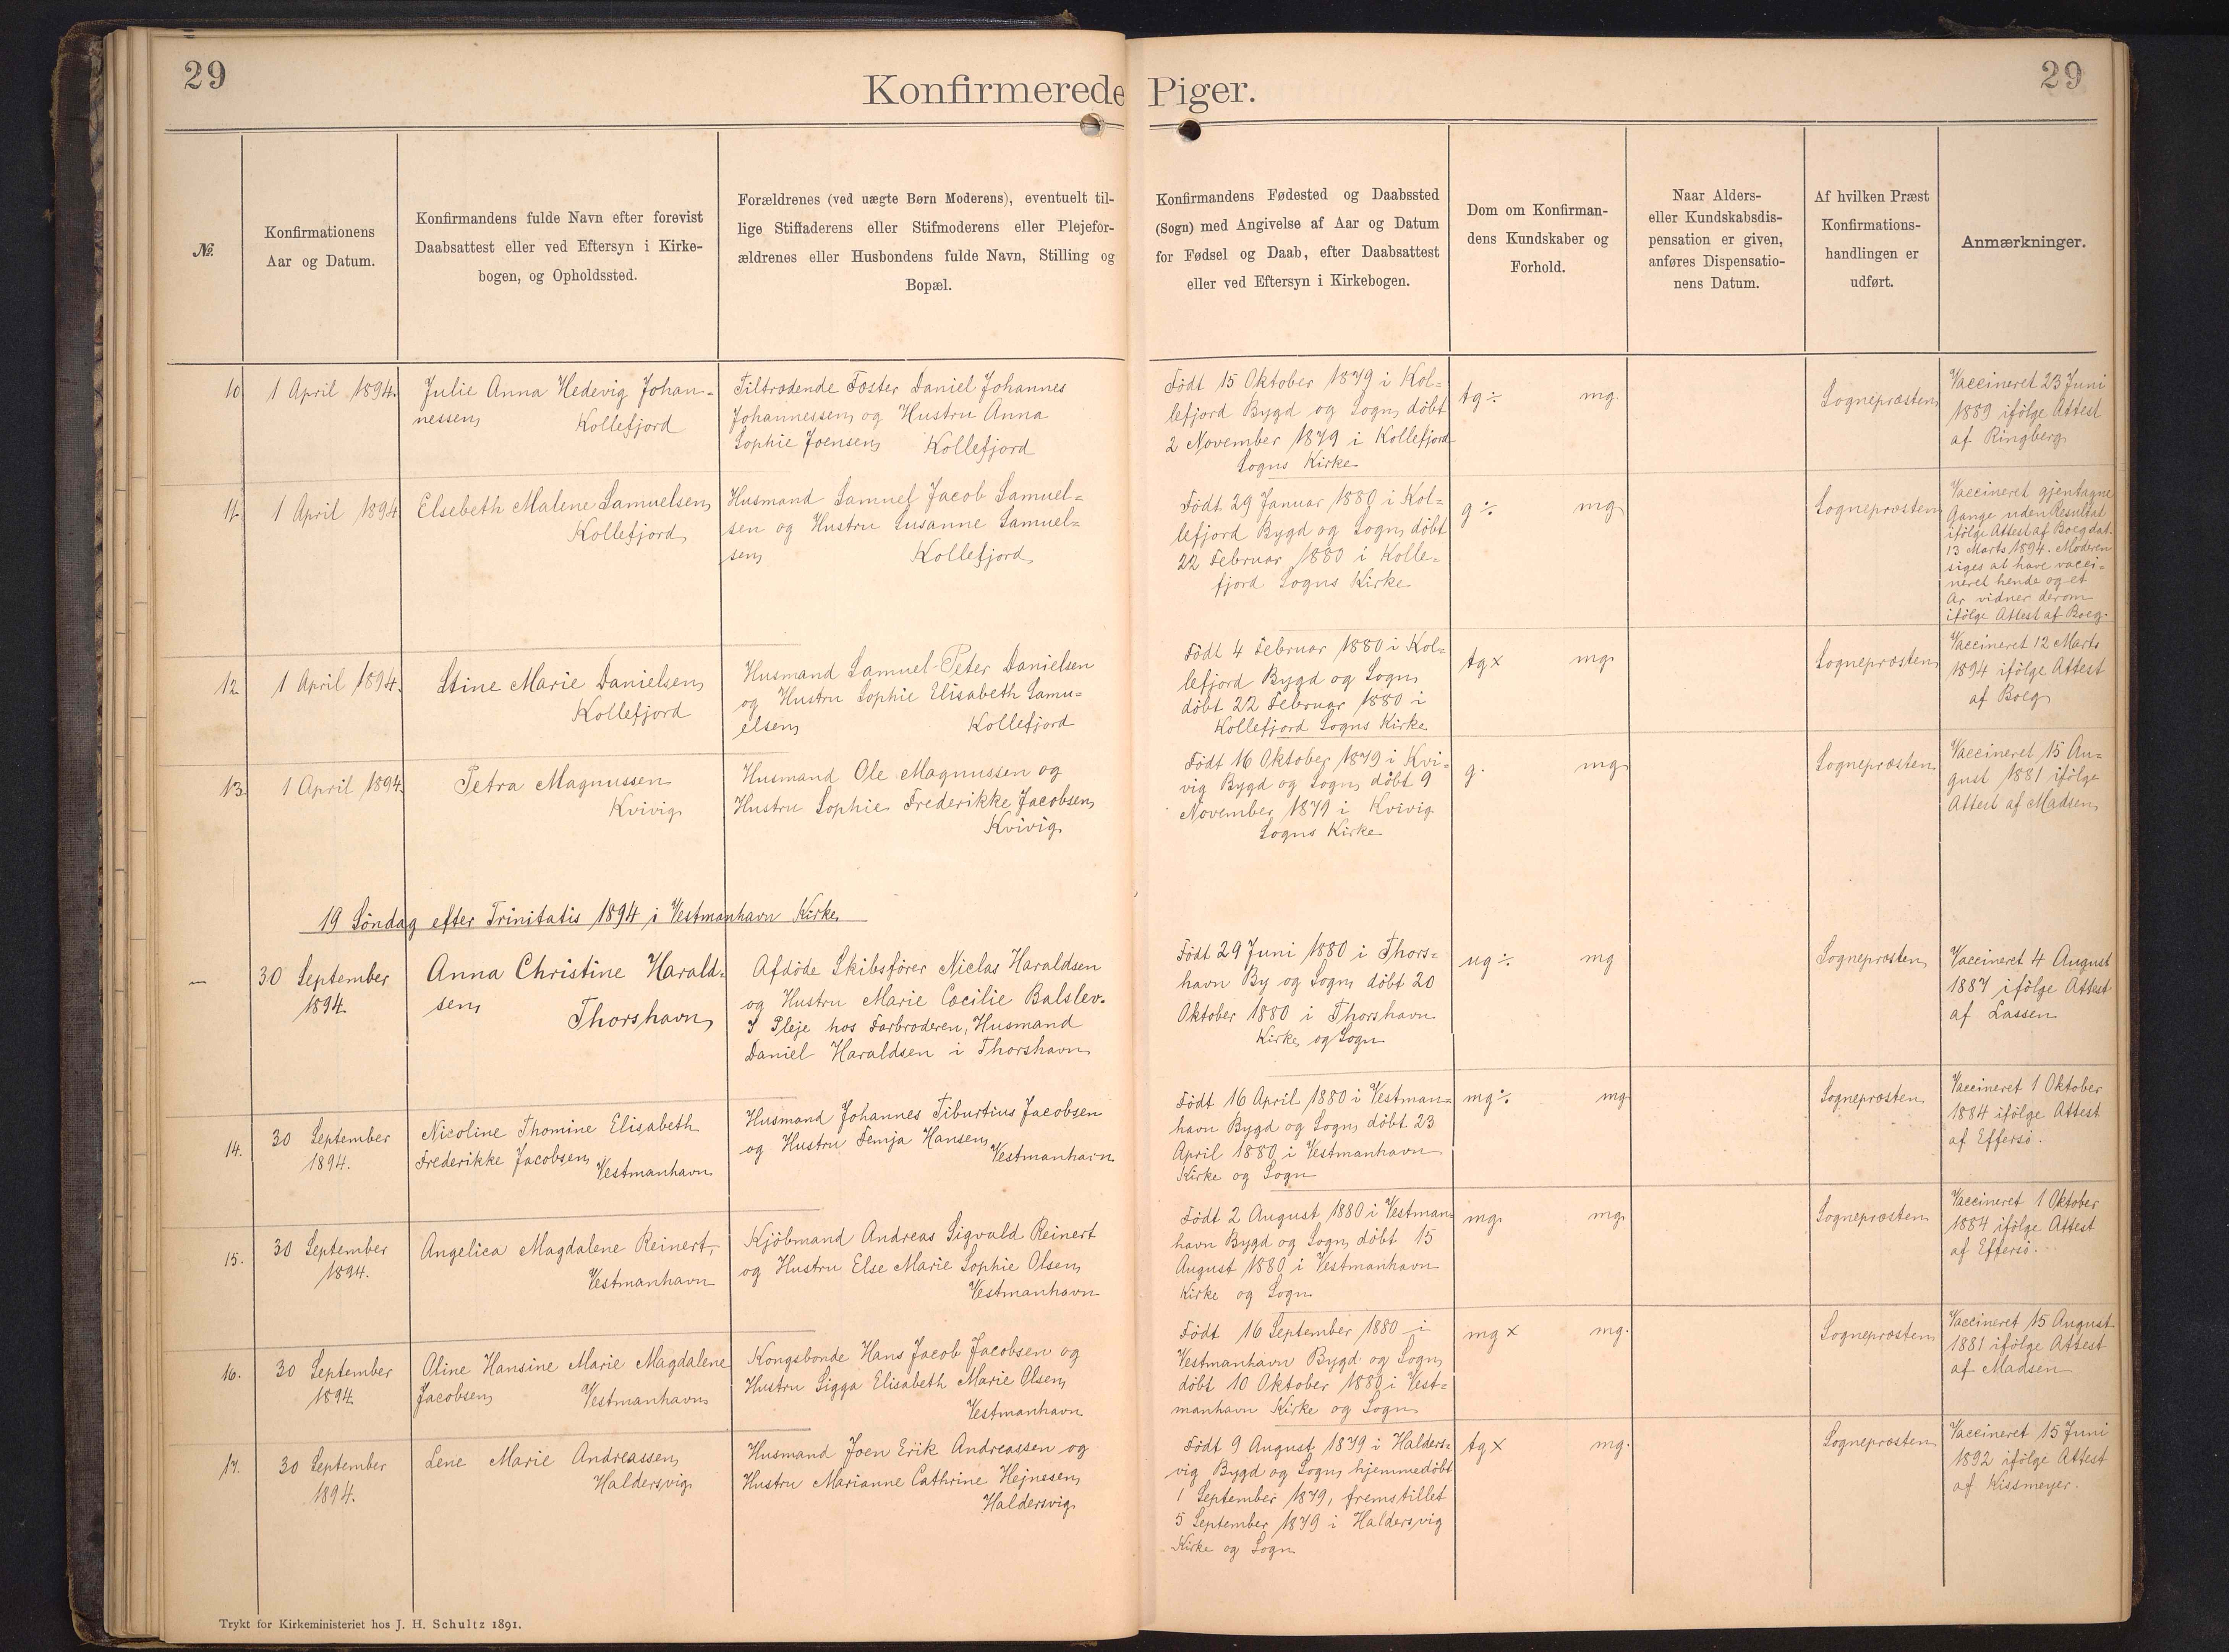 29
29
Konfirmerede Piger.
№
Konfirmationens
Aar og Datum.
Konfirmandens fulde Navn efter forevist
Daabsattest eller ved Eftersyn i Kirke-
bogen, og Opholdssted.
Forældrenes (ved uægte Børn Moderens), eventuelt til-
lige Stiffaderens eller Stifmoderens eller Plejefor-
ældrenes eller Husbondens fulde Navn, Stilling og
Bopæl.
Konfirmandens Fødested og Daabssted
(Sogn) med Angivelse af Aar og Datum
for Fødsel og Daab, efter Daabsattest
eller ved Eftersyn i Kirkebogen.
Dom om Konfirman-
dens Kundskaber og
Forhold.
Naar Alders-
eller Kundskabsdis-
pensation er given,
anføres Dispensatio-
nens Datum.
Af hvilken Præst
Konfirmations-
handlingen er
udført.
Anmærkninger.
10
1 April 1894.
Julie Anna Hedevig Johan-
nessen
Kollefjord
Tiltrædende Fæster Daniel Johannes
Johannessen og Hustru Anna
Sophie Joensen Kollefjord
Født 15 Oktober 1879 i Kol=
lefjord Bygd og Sogn, döbt
2 November 1879 i Kollefjord
Sogns Kirke
tg÷ mg.
Sognepræsten
Vaccineret 23 Juni
1889 ifölge Attest
af Ringberg
11.
1 April 1894
Elsebeth Malene Samuelsen
Kollefjord
Husmand Samuel Jacob Samuel=
sen og Hustru Susanne Samuel=
sen Kollefjord
Födt 29 Januar 1880 i Kol=
lefjord Bygd og Sogn, döbt
22 Februar 1880 i Kolle=
fjord Sogns Kirke
g÷ mg
Sognepræsten
Vaccineret gjentagne
Gange uden Resultat
ifölge Attest af Boeg dat.
13 Marts 1894. Moderen
siges at have vacci=
neret hende og et
Ar vidner derom
ifölge Attest af Boeg.
12.
1 April 1894.
Stine Marie Danielsen
Kollefjord
Husmand Samuel Peter Danielsen
og Hustru Sophie Elisabeth Samu=
elsen Kollefjord
Födt 4 Februar 1880 i Kol=
lefjord Bygd og Sogn
döbt 22 Februar 1880 i
Kollefjord Sogns Kirke
tg× mg
Sognepræsten
Vaccineret 12 Marts
1894 ifölge Attest
af Boeg
13.
1 April 1894.
Petra Magnussen
Kvivig
Husmand Ole Magnussen og
Hustru Sophie Frederikke Jacobsen
Kvivig
Födt 16 Oktober 1879 i Kvi=
vig Bygd og Sogn, döbt 9
November 1879 i Kvivig
Sogns Kirke
g. mg
Sognepræsten
Vaccineret 15 Au=
gust 1881 ifölge
Attest af Madsen
19 Söndag efter Trinitatis 1894 i Vestmanhavn Kirke
—
30 September
1894.
Anna Christine Harald=
sen
Thorshavn
Afdöde Skibsförer Niclas Haraldsen
og Hustru Marie Cæcilie Balslev.
I Pleje hos Farbroderen, Husmand
Daniel Haraldsen i Thorshavn
Födt 29 Juni 1880 i Thors=
havn By og Sogn döbt 20
Oktober 1880 i Thorshavn
Kirke og Sogn
ug÷ mg
Sognepræsten
Vaccineret 4 August
1887 ifölge Attest
af Lassen
14.
30 September
1894.
Nicoline Thomine Elisabeth
Frederikke Jacobsen
Vestmanhavn
Husmand Johannes Tiburtius Jacobsen
og Hustru Femja Hansen
Vestmanhavn
Födt 16 April 1880 i Vestman=
havn Bygd og Sogn, döbt 23
April 1880 i Vestmanhavn
Kirke og Sogn
mg÷ mg
Sognepræsten
Vaccineret 1 Oktober
1884 ifölge Attest
af Effersö.
15.
30 September
1894.
Angelica Magdalene Reinert,
Vestmanhavn
Kjöbmand Andreas Sigvald Reinert
og Hustru Else Marie Sophie Olsen
Vestmanhavn
Födt 2 August 1880 i Vestman=
havn Bygd og Sogn, döbt 15
August 1880 i Vestmanhavn
Kirke og Sogn
mg mg
Sognepræsten
Vaccineret 1 Oktober
1884 ifölge Attest
af Effersö.
16.
30 September
1894
Oline Hansine Marie Magdalene
Jacobsen Vestmanhavn
Kongsbonde Hans Jacob Jacobsen og
Hustru Sigga Elisabeth Marie Olsen
Vestmanhavn
Födt 16 September 1880 i
Vestmanhavn Bygd og Sogn
döbt 10 Oktober 1880 i Vest=
manhavn Kirke og Sogn
mg× mg.
Sognepræsten
Vaccineret 15 August
1881 ifölge Attest
af Madsen
17.
30 September
1894.
Lene Marie Andreassen
Haldersvig
Husmand Joen Erik Andreassen og
Hustru Marianne Cathrine Hejnesen
Haldersvig
Födt 9 August 1879 i Halders=
vig Bygd og Sogn, hjemmedöbt
1 September 1879, fremstillet
5 September 1879 i Haldersvig
Kirke og Sogn
tg× mg.
Sognepræsten
Vaccineret 15 Juni
1892 ifölge Attest
af Kissmeyer.
Trykt for Kirkeministeriet hos J. H. Schultz 1891.